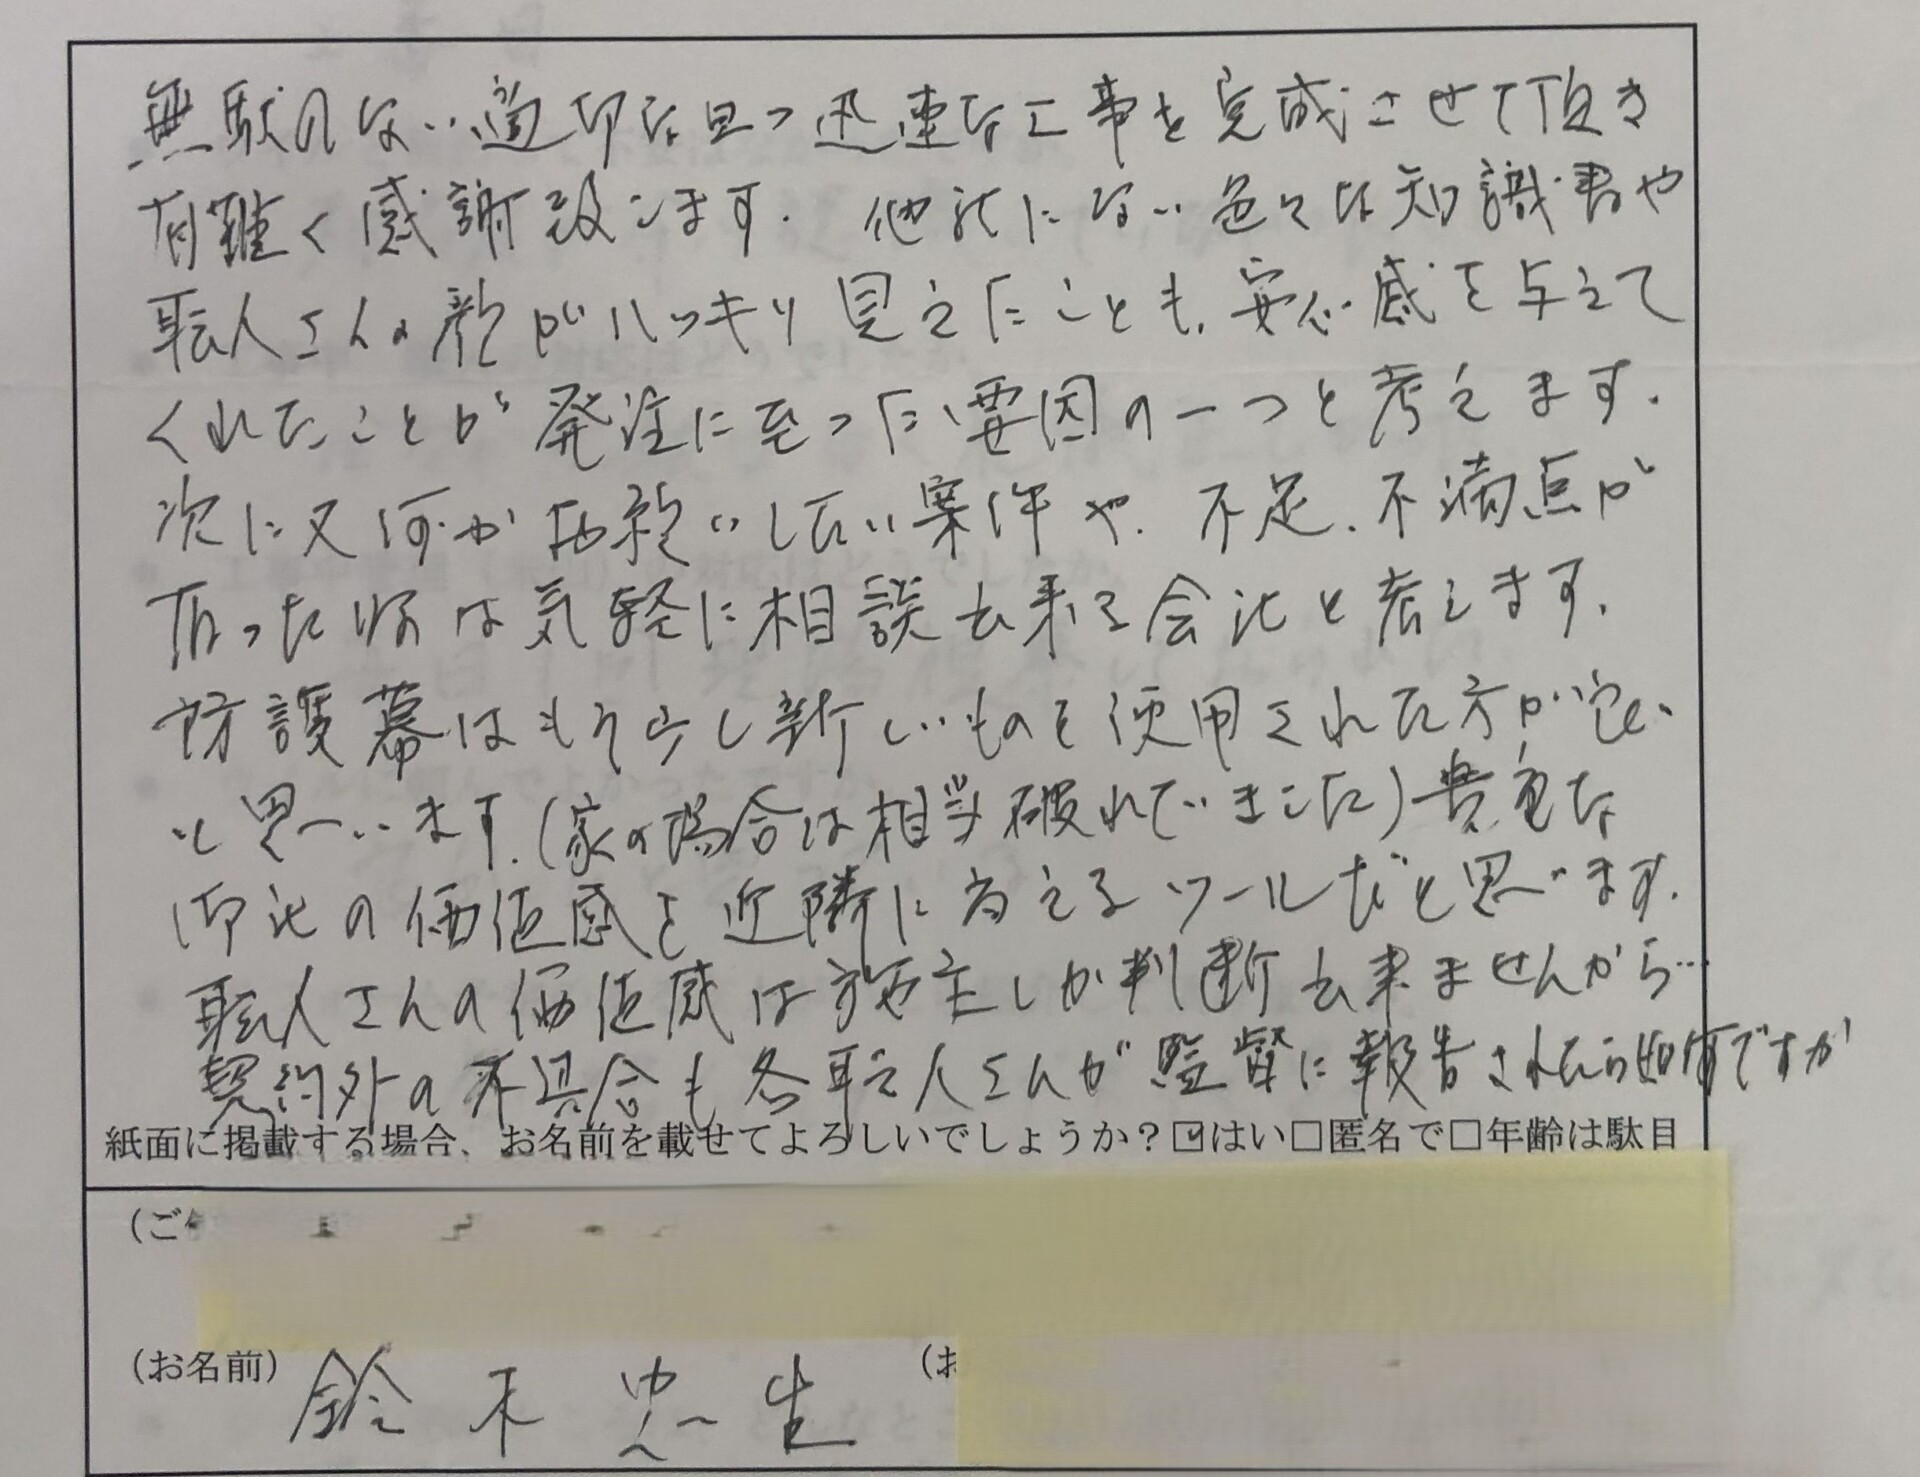 無駄のない適切な且つ迅速な工事を完成させて頂き
有難く感謝致します。他社にない色々な知識書や
職人さんの顔がハッキリ見えたことも、安心感を与えて
くれたことが発注に至った要因の一つと考えます。
次に又何かお願いしたい案件や、不足、不満点が
有った際は気軽に相談出来る会社と考えます。
防護幕はもう少し新しいものを使用された方が良い
と思います。(家の場合は相当破れていました)貴重な
御社の価値感を近隣に与えるツールだと思います。
職人さんの価値感は施主しか判断出来ませんから…
契約外の不具合も各職人さんが監督に報告されたら如何ですか
紙面に掲載する場合、お名前を載せてよろしいでしょうか?☑はい□匿名で□年齢は駄目
(ご
(お名前) 鈴木忠生 (お